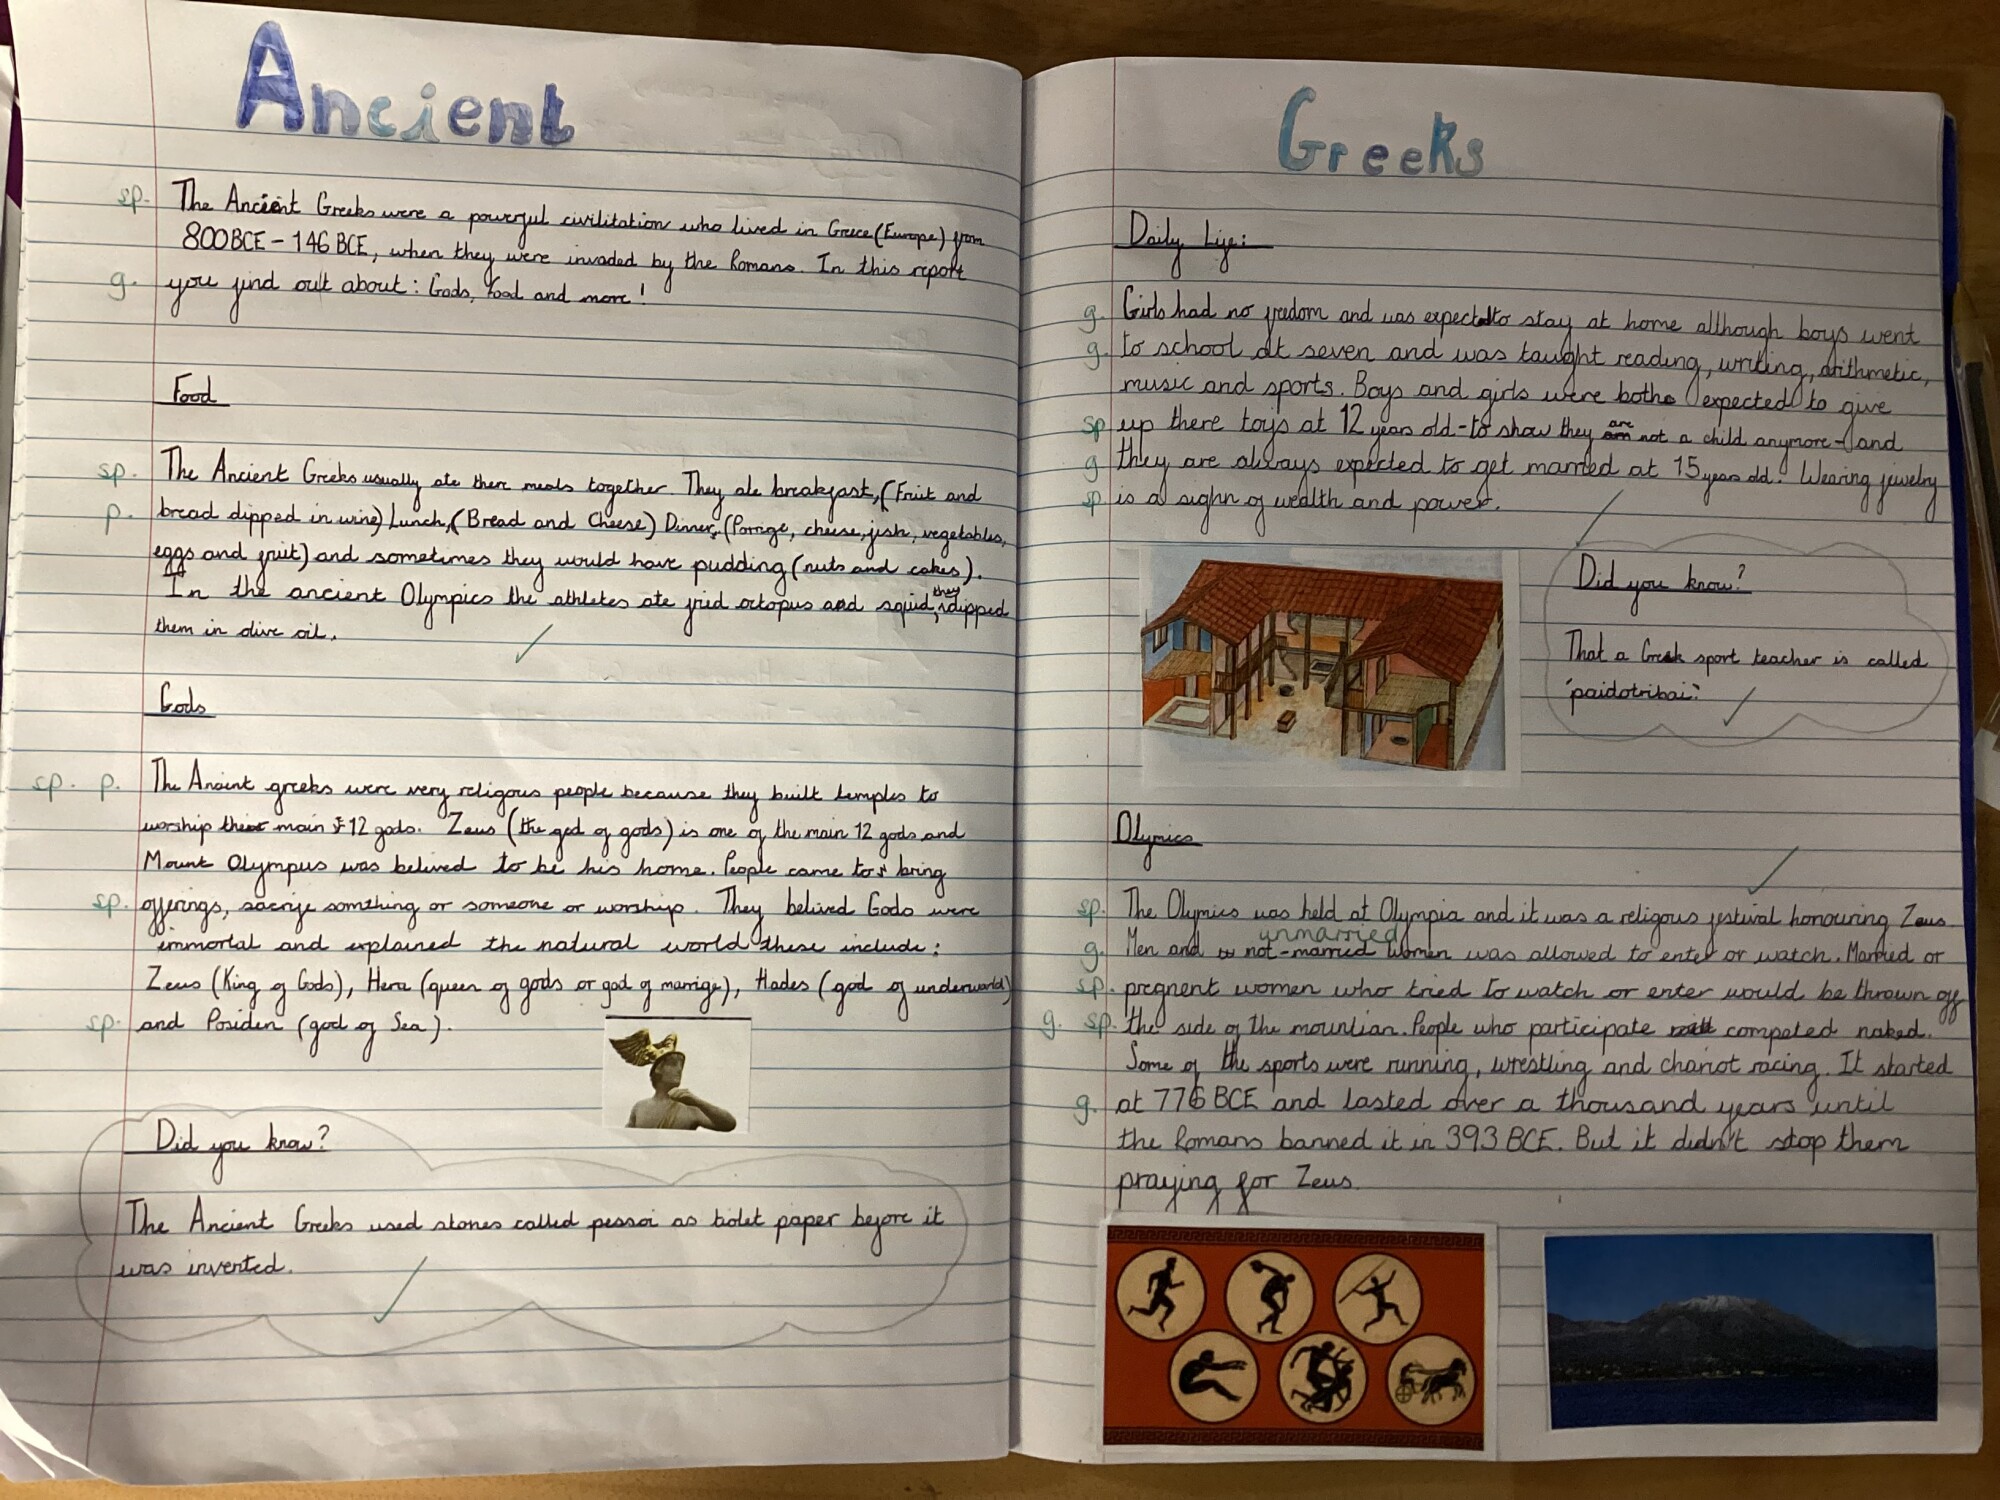 Ancient
sp. The Anciént Greeks were a powerful civilitation who lived in Grece (Europe) from
800BCE - 146 BCE, when they were invaded by the Romans. In this report
g. you find out about: Gods, food and more!
Food
sp. The Ancient Greeks usually ate there meals together. They ate breakfast, (Fruit and
p. bread dipped in wine) Lunch, (Bread and Cheese) Dinner, (Porrige, cheese, fish, vegetables,
eggs and friut) and sometimes they would have pudding (nuts and cakes).
In the ancient Olympics the athletes ate fried octopus and squid, they dipped
them in olive oil.
Gods
sp. p. The Ancient greeks were very religous people because they built temples to
worship their main 12 gods. Zeus (the god of gods) is one of the main 12 gods and
Mount Olympus was belived to be his home. People came to bring
sp. offerings, sacrife somthing or someone or worship. They belived Gods were
immortal and explained the natural world these include:
Zeus (King of Gods), Hera (queen of gods or god of marrige), Hades (god of underworld)
sp. and Posiden (god of Sea).
Did you know?
The Ancient Greeks used stones called pessoi as toilet paper before it
was invented.
Greeks
Daily Life:
g. Girls had no freedom and was expected to stay at home although boys went
g. to school at seven and was taught reading, writing, arithmetic,
music and sports. Boys and girls were both expected to give
sp up there toys at 12 years old - to show they are not a child anymore - and
g they are always expected to get married at 15 years old. Wearing jewelry
sp is a sighn of wealth and power.
Did you know?
That a Greek sport teacher is called
'paidotribai'.
Olymics
sp. The Olymics was held at Olympia and it was a religous festival honouring Zeus.
unmarried
g. Men and not-married women was allowed to enter or watch. Married or
sp. pregnent women who tried to watch or enter would be thrown off
g. sp. the side of the mountian. People who participate competed naked.
Some of the sports were running, wrestling and chariot racing. It started
g. at 776 BCE and lasted over a thousand years until
the Romans banned it in 393 BCE. But it didn't stop them
praying for Zeus.